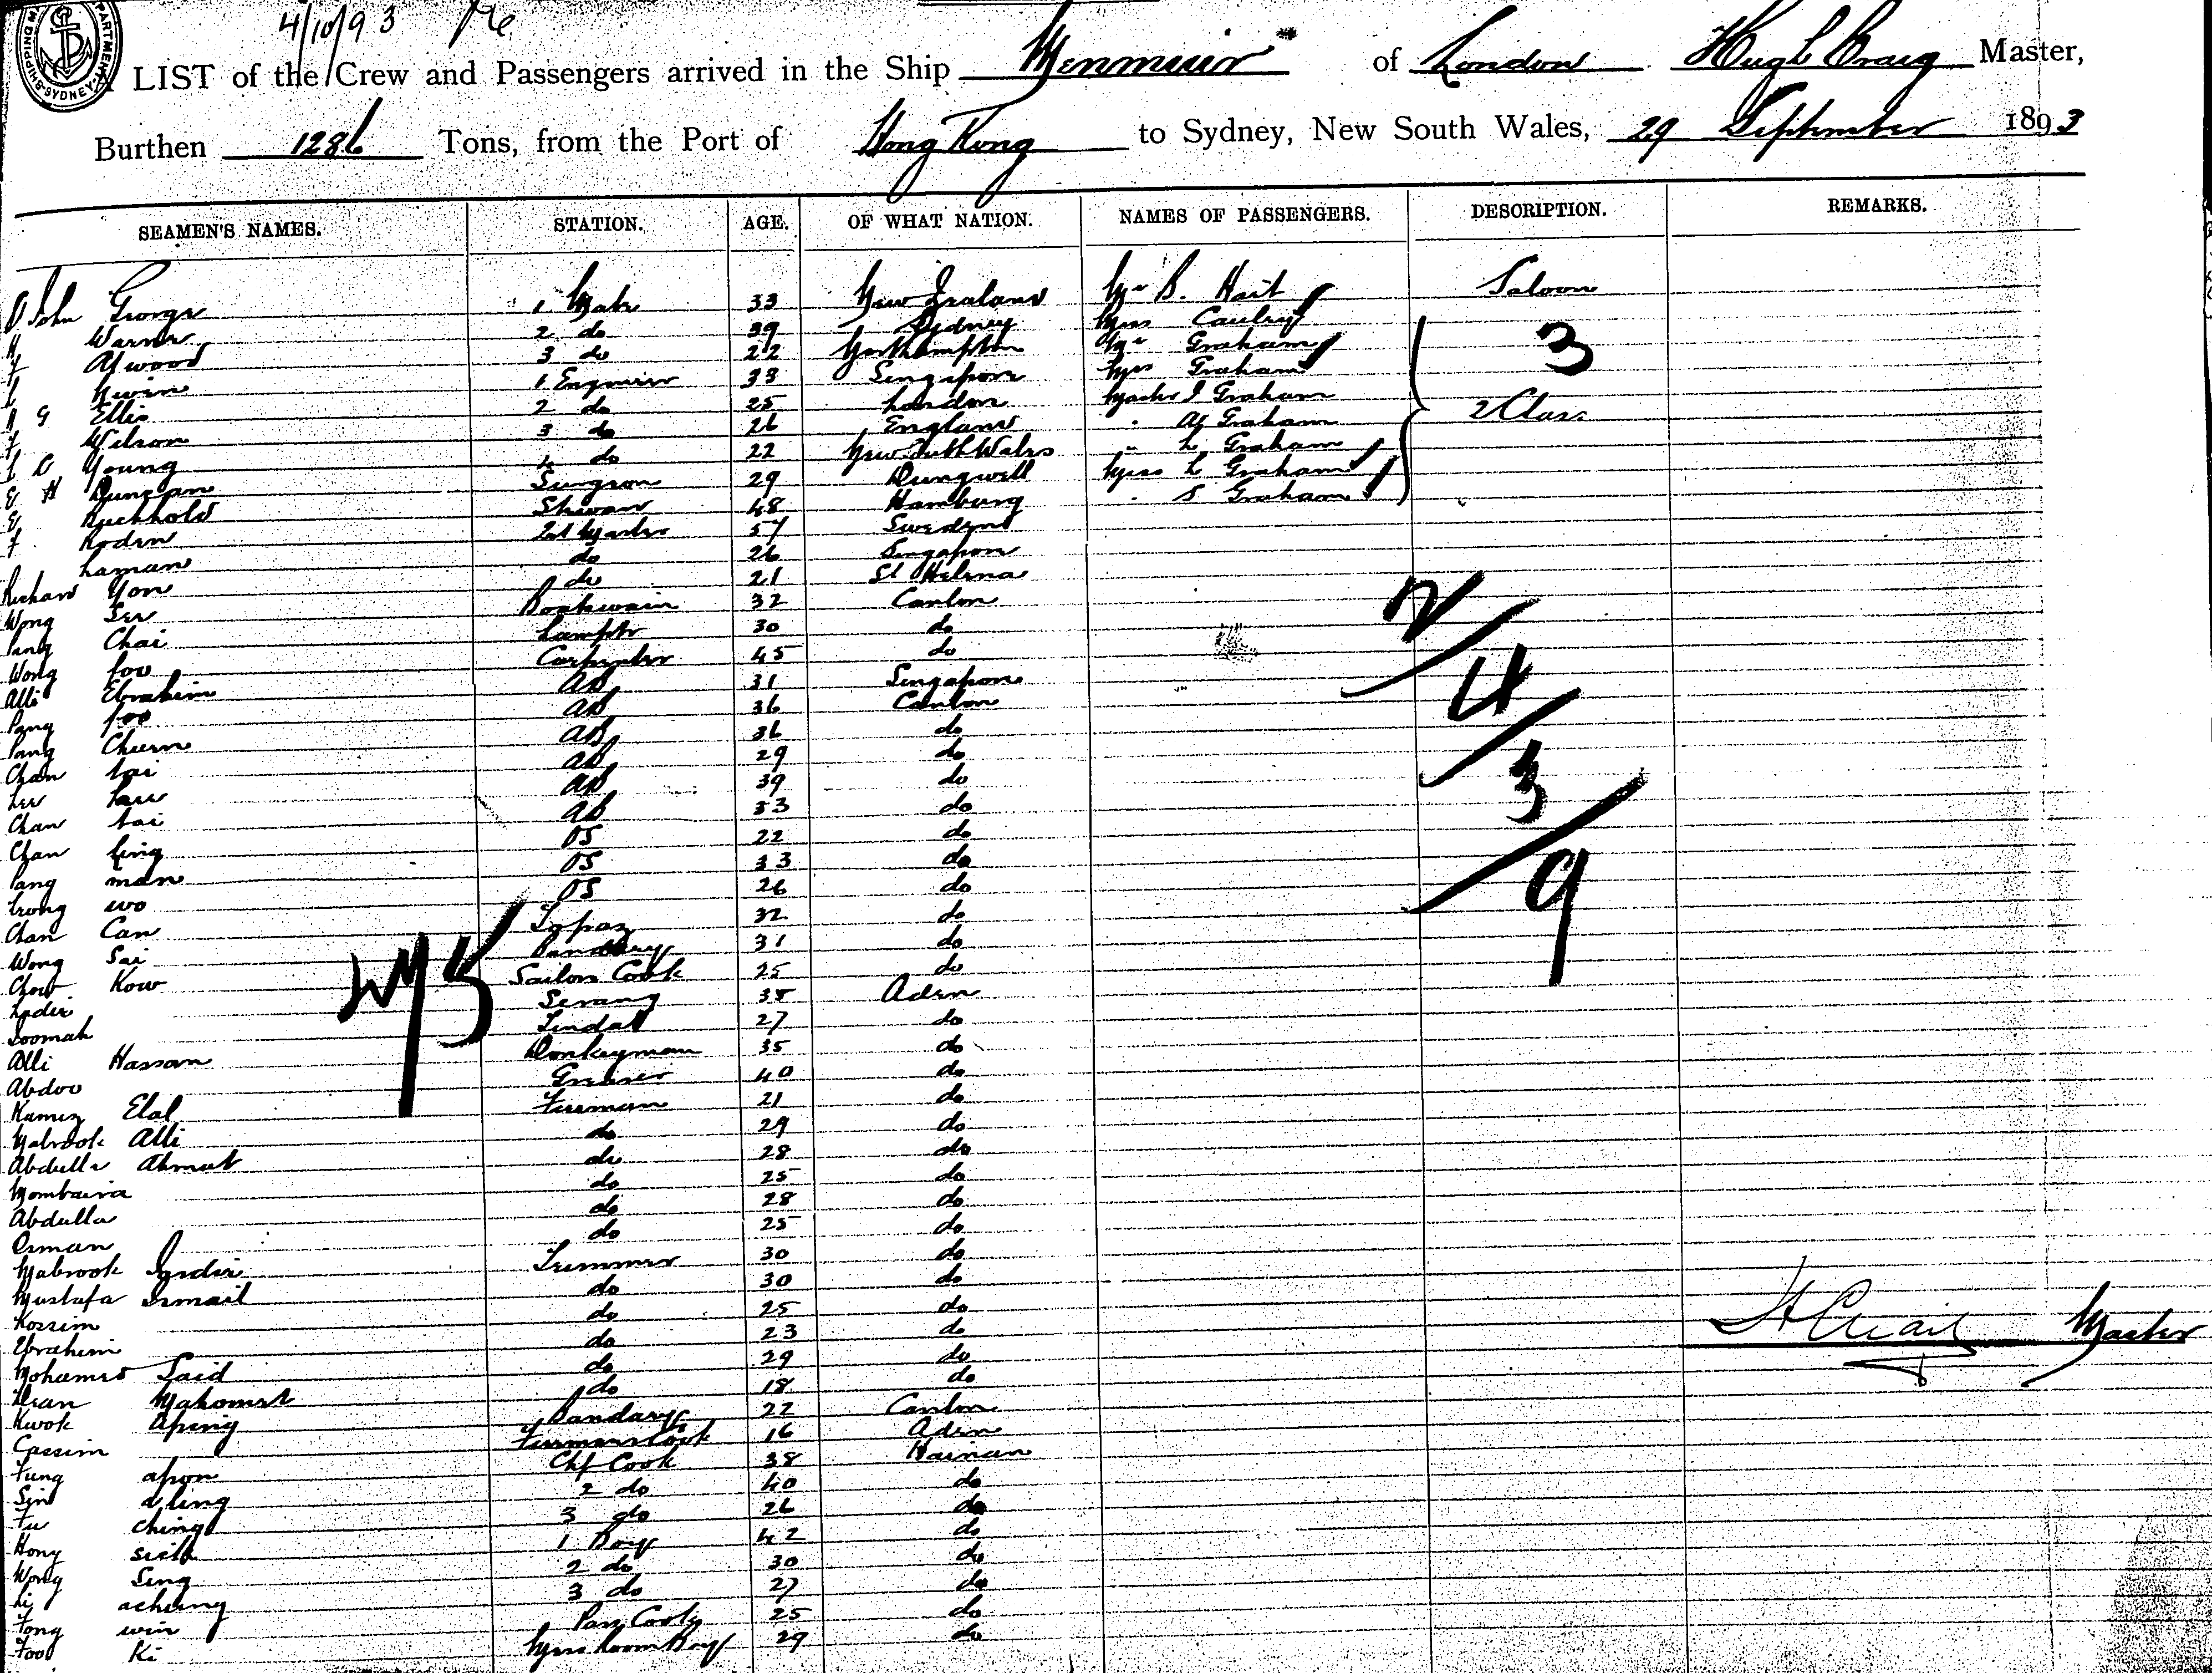 4/10/93
SHIPPING MASTER'S DEPARTMENT SYDNEY
A LIST of the Crew and Passengers arrived in the Ship Menmuir of London Hugh Craig Master,
Burthen 1286 Tons, from the Port of Hong Kong to Sydney, New South Wales, 29 September 1893
SEAMEN'S NAMES. STATION. AGE. OF WHAT NATION. NAMES OF PASSENGERS. DESCRIPTION. REMARKS.
John George 1 Mate 33 New Zealand Mr B. Hait Saloon
Warner 2 do 39 Sydney Miss 3
Atwood 3 do 22 Northampton Mr Graham
1 Engineer 33 Singapore Mrs Graham
G Ellis 2 do 25 London Master J Graham
Wilson 3 do 26 England " A Graham 2 Class
Young 4 do 22 New South Wales " L Graham
E H Duncan Surgeon 29 Miss L Graham
E Buchhold Steward 48 Hamburg " S Graham
F. Roden Qt Master 57 Sweden
Laman do 26 Singapore
Richard Yon do 21 St Helena
Wong See Boatswain 32 Canton
Pang Chai Lamptr 30 do
Wong foo Carpenter 45 do
Alli Ebrahim AB 31 Singapore
Pang foo AB 36 Canton
Pang Cheern AB 36 do
Chan tai AB 29 do
Lee AB 39 do
Chan tai AB 33 do
Chan ling OS 22 do
Pang man OS 33 do
wo OS 26 do
Chan Can Topaz 32 do
Wong Sai Bandary 31 do
Chow Kow Sailors Cook 25 do
Serang 38 Aden
Soomah Tindal 27 do
Alli Hassan Donkeyman 35 do
Abdoo Greaser 40 do
Kamiz Elal Fireman 21 do
Mabrook Alli do 29 do
Abdulla Ahmat do 28 do
Mombassa do 25 do
Abdulla do 28 do
Osman do 25 do
Mabrook Trimmer 30 do
Mustafa Ismail do 30 do
Kossim do 25 do
Ebrahim do 23 do
Mohamed Said do 29 do
Dean Mahomet do 18 do
Kwok Aping Bandary 22 Canton
Cassim Firemans Cook 16 Aden
Fung apon Chf Cook 38 Hainan
Sin a ling 2 do 40 do
Fu ching 3 do 26 do
Hong 1 Boy 42 do
Wong Sing 2 do 30 do
Li acheing 3 do 27 do
Fong win Pan Cooly 25 do
Foo Ki Messroom Boy 29 do
2
4
3
9
H Craig Master